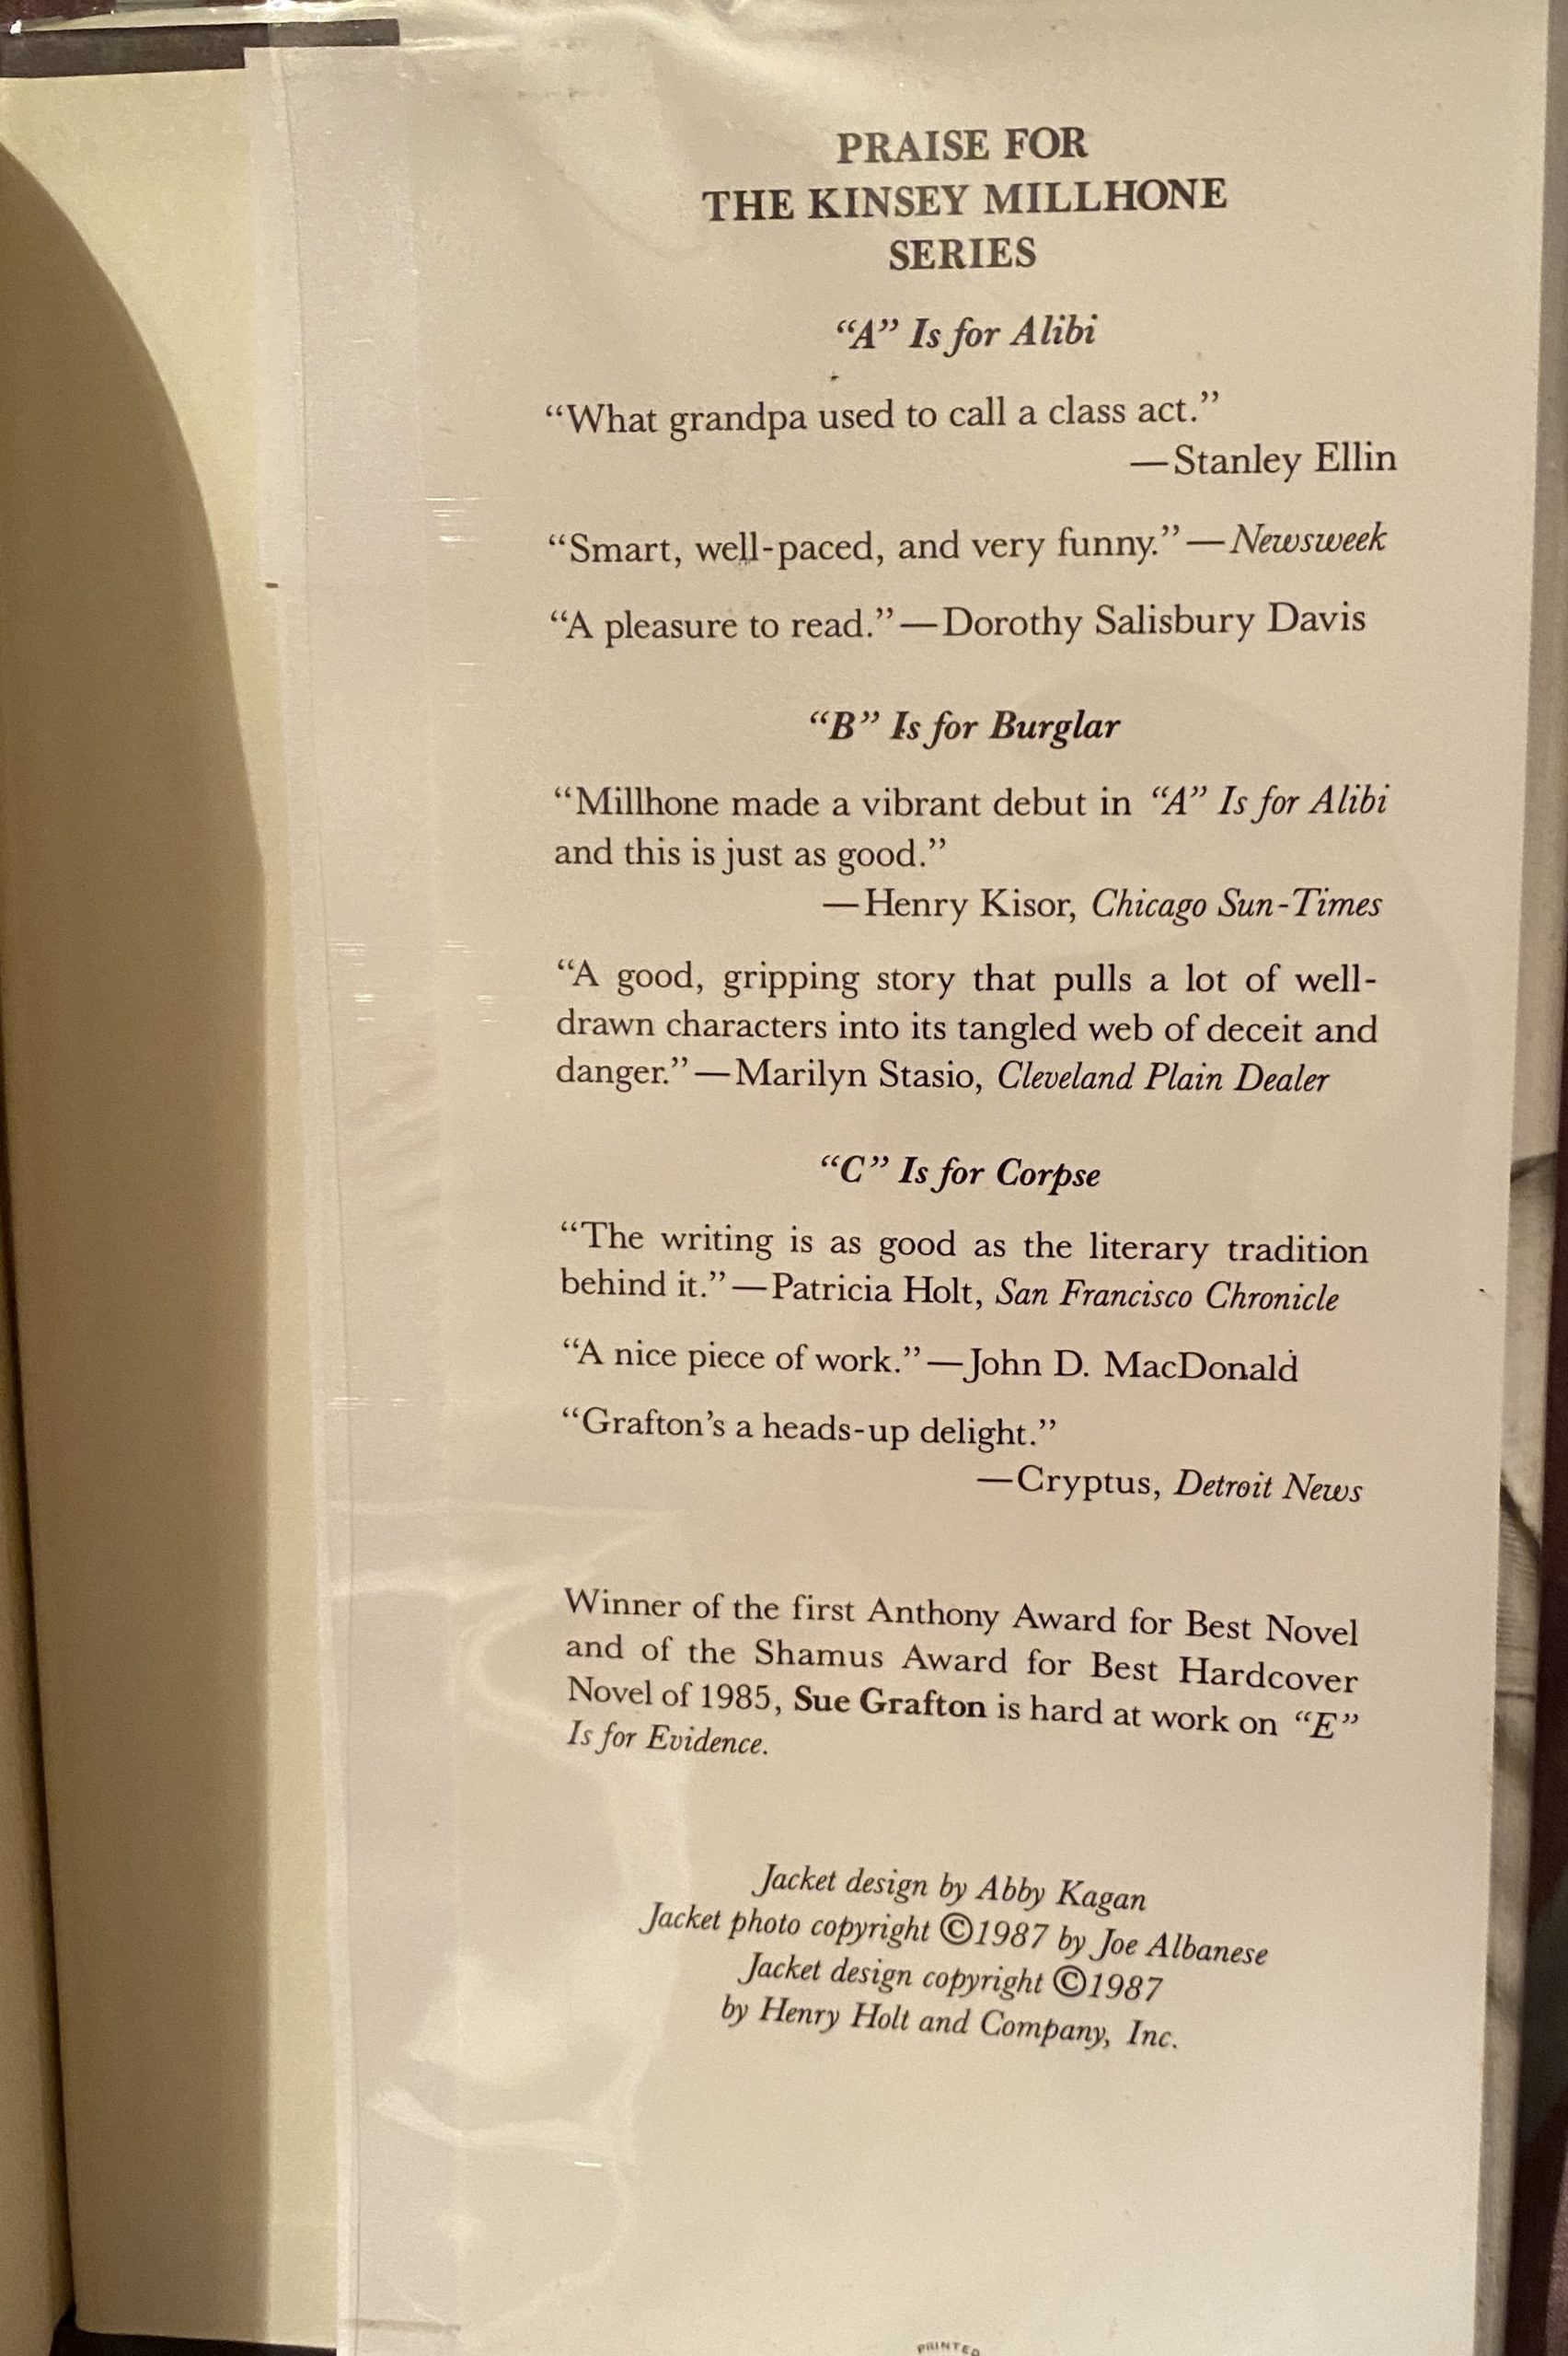 PRAISE FOR
THE KINSEY MILLHONE
SERIES
“A” Is for Alibi
“What grandpa used to call a class act.”
—Stanley Ellin
“Smart, well-paced, and very funny.”—Newsweek
“A pleasure to read.”—Dorothy Salisbury Davis
“B” Is for Burglar
“Millhone made a vibrant debut in “A” Is for Alibi
and this is just as good.”
—Henry Kisor, Chicago Sun-Times
“A good, gripping story that pulls a lot of well-
drawn characters into its tangled web of deceit and
danger.”—Marilyn Stasio, Cleveland Plain Dealer
“C” Is for Corpse
“The writing is as good as the literary tradition
behind it.”—Patricia Holt, San Francisco Chronicle
“A nice piece of work.”—John D. MacDonald
“Grafton’s a heads-up delight.”
—Cryptus, Detroit News
Winner of the first Anthony Award for Best Novel
and of the Shamus Award for Best Hardcover
Novel of 1985, Sue Grafton is hard at work on “E”
Is for Evidence.
Jacket design by Abby Kagan
Jacket photo copyright ©1987 by Joe Albanese
Jacket design copyright ©1987
by Henry Holt and Company, Inc.
PRINTED